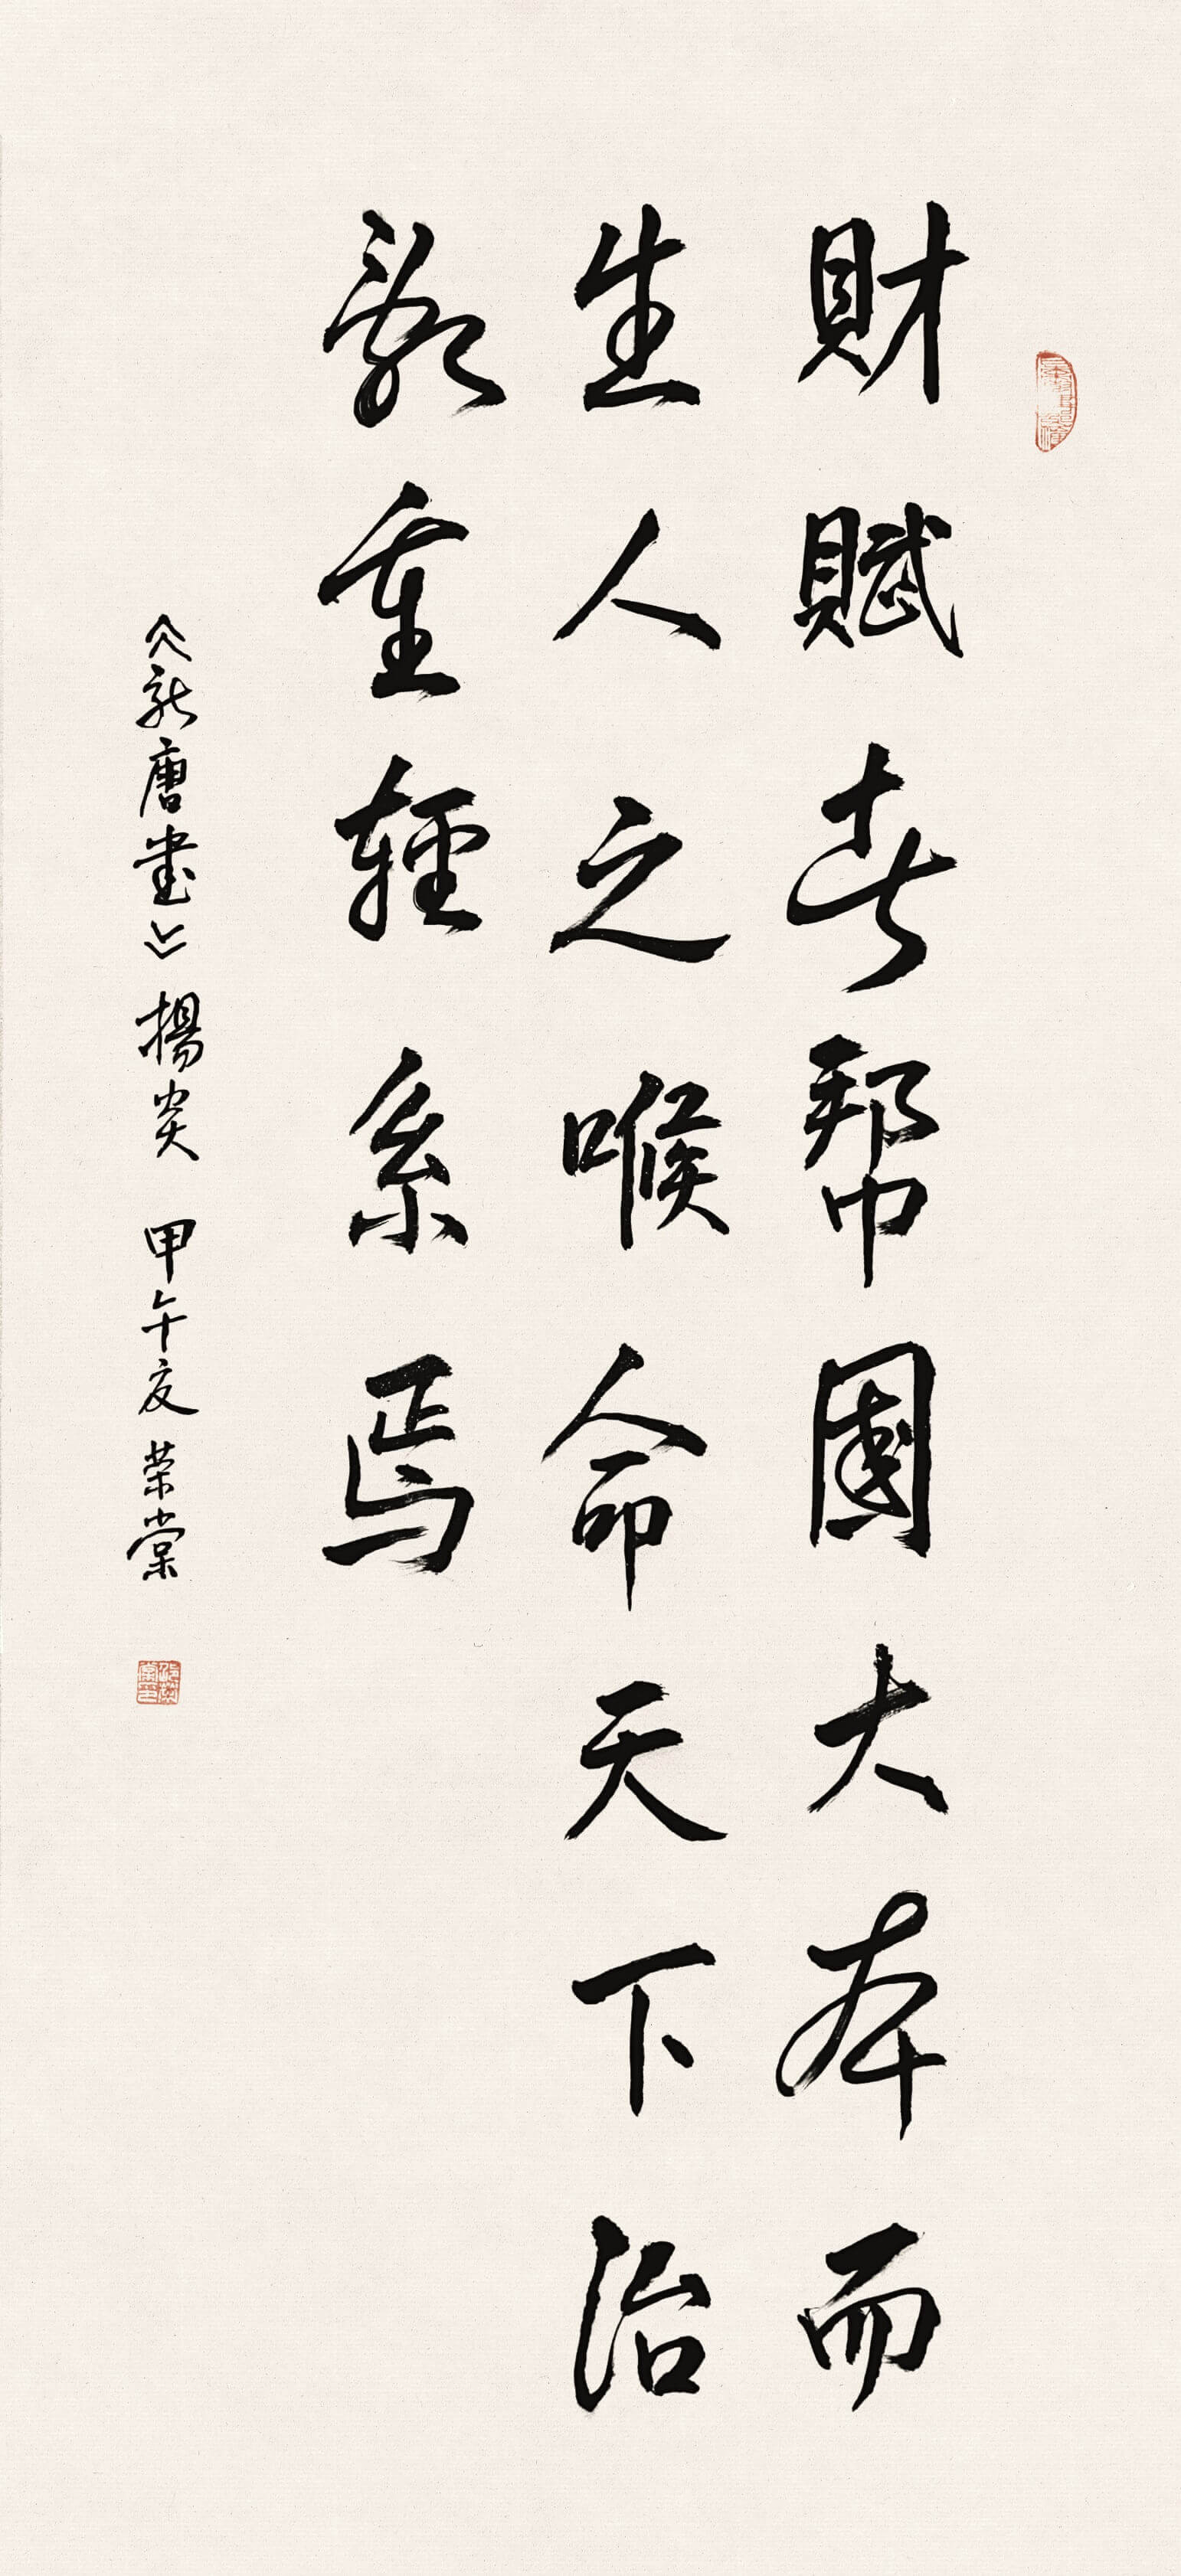 財賦者帮國大本而
生人之喉命天下治
亂重輕系焉
《新唐書》楊炎 甲午夏 荣棠